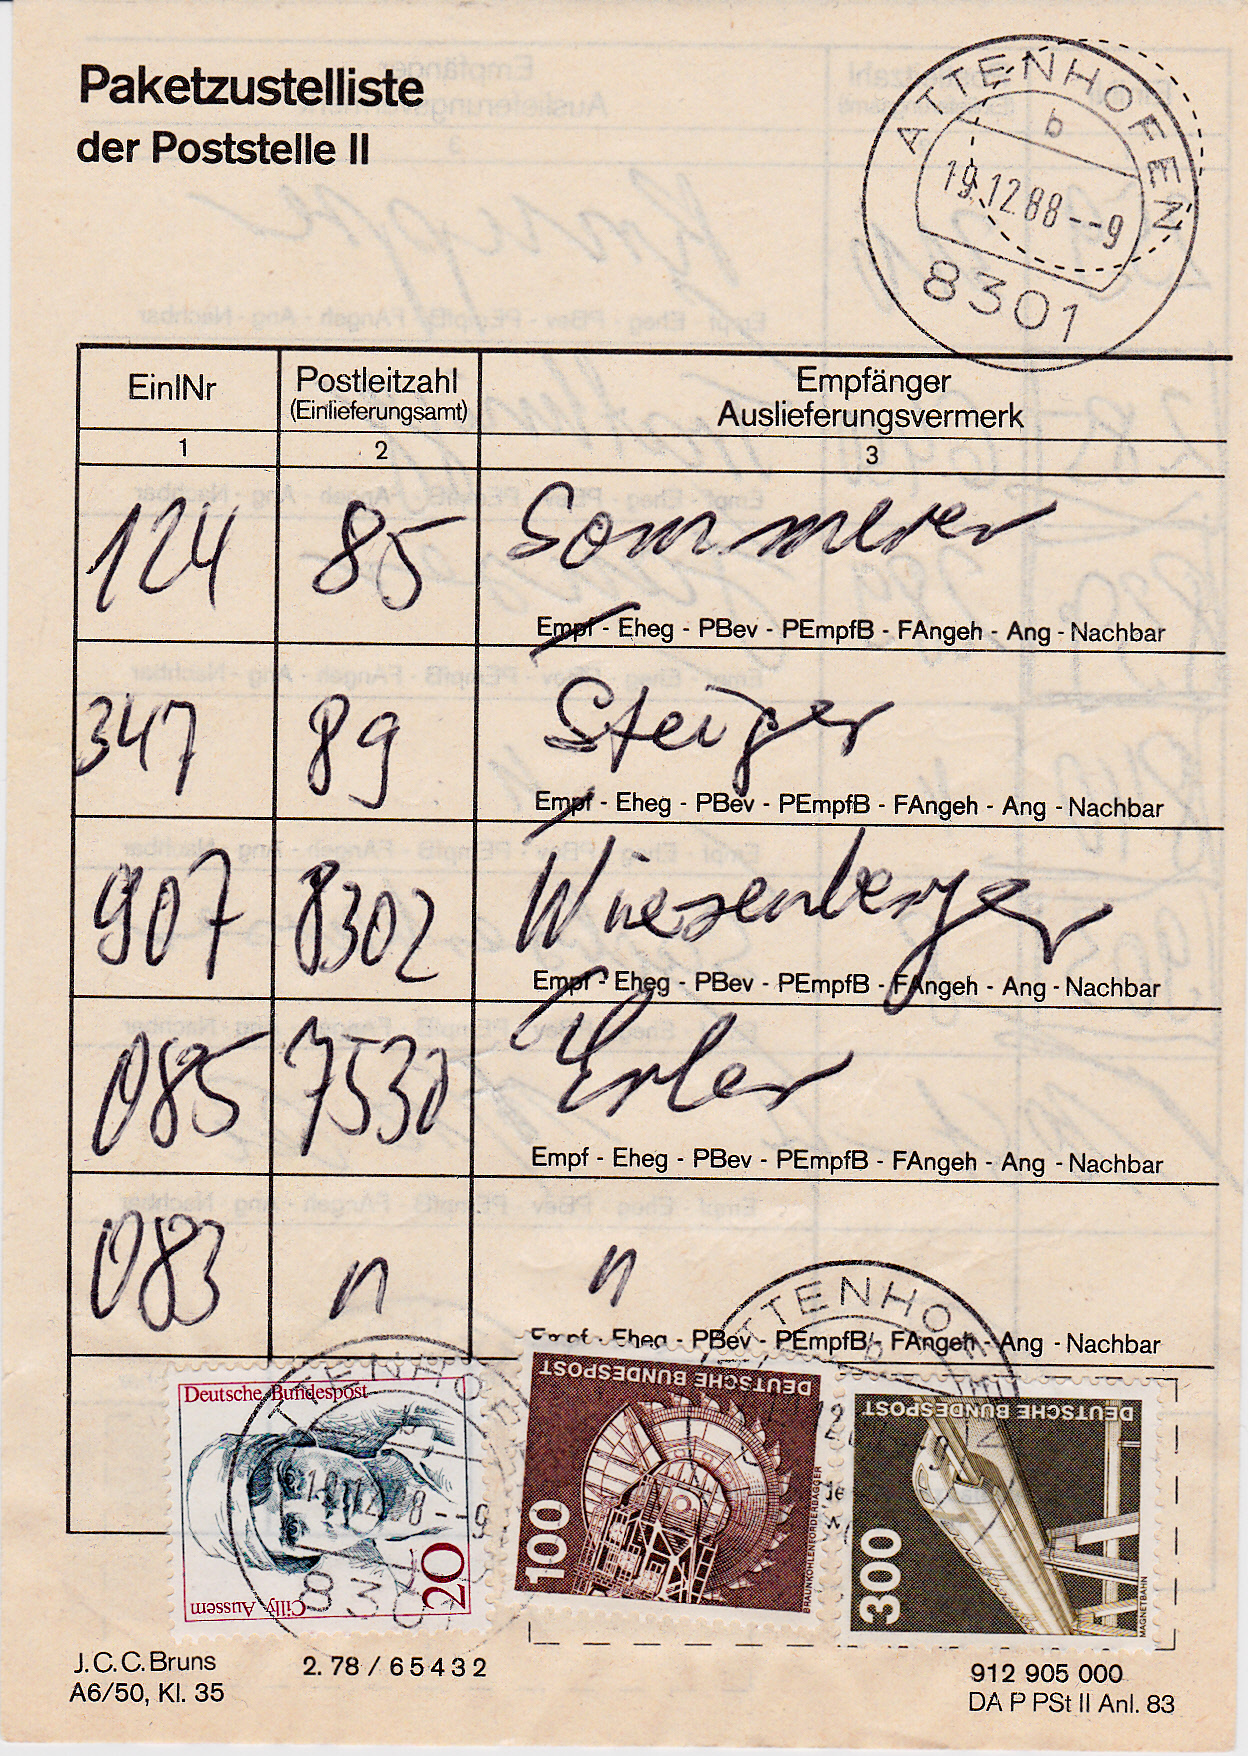 Paketzustelliste
der Poststelle II
ATTENHOFEN
b
19.12.88--9
8301
EinlNr
Postleitzahl
(Einlieferungsamt)
Empfänger
Auslieferungsvermerk
1
2
3
124 85 Sommerer
Empf - Eheg - PBev - PEmpfB - FAngeh - Ang - Nachbar
347 89 Steiger
Empf - Eheg - PBev - PEmpfB - FAngeh - Ang - Nachbar
907 8302 Wiesenberger
Empf - Eheg - PBev - PEmpfB - FAngeh - Ang - Nachbar
085 7530 Erler
Empf - Eheg - PBev - PEmpfB - FAngeh - Ang - Nachbar
083 n n
Empf - Eheg - PBev - PEmpfB - FAngeh - Ang - Nachbar
Deutsche Bundespost
Cilly Aussem
20
DEUTSCHE BUNDESPOST
100
BRAUNKOHLENFÖRDERBAGGER
DEUTSCHE BUNDESPOST
300
MAGNETBAHN
J.C.C.Bruns
A6/50, Kl. 35
2.78 / 65432
912 905 000
DA P PSt II Anl. 83